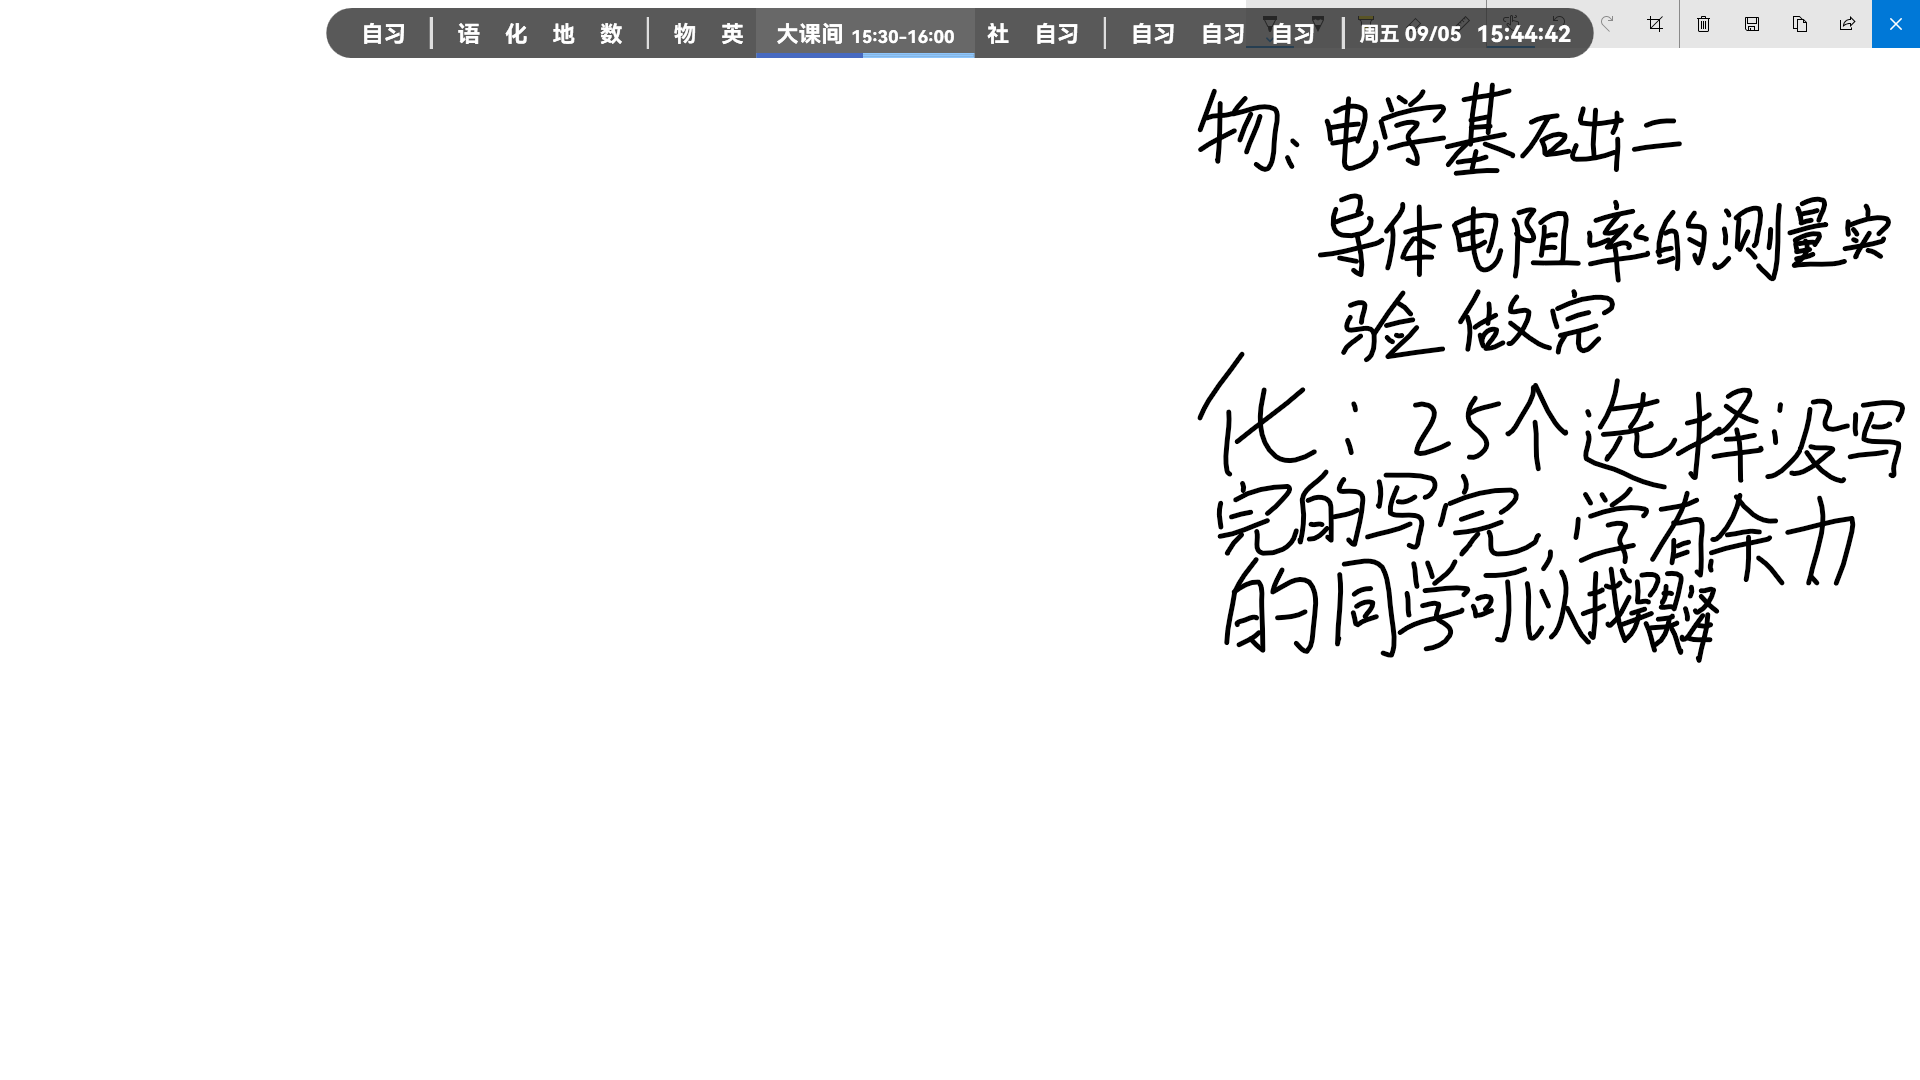 自习 | 语 化 地 数 | 物 英 大课间 15:30-16:00 社 自习 | 自习 自习 自习 | 周五 09/05 15:44:42
物：电学基础二
导体电阻率的测量实
验做完
化：25个选择没写
完的写完，学有余力
的同学可以找